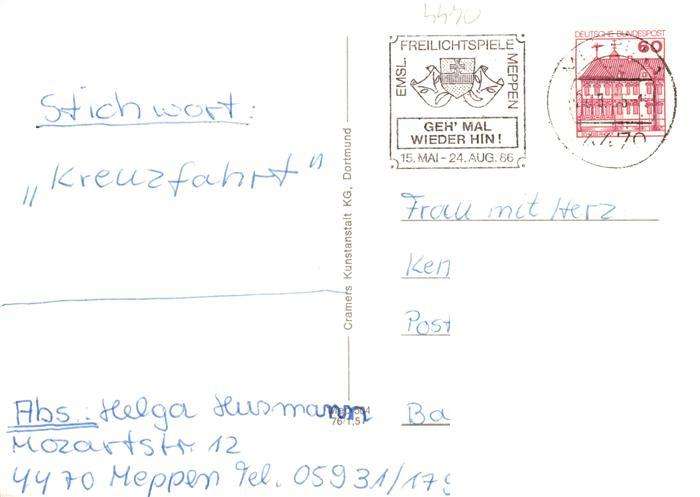 4470
DEUTSCHE BUNDESPOST
60
EMSL. FREILICHTSPIELE MEPPEN
GEH' MAL
WIEDER HIN!
15. MAI - 24. AUG. 86
4470
Stichwort:
„Kreuzfahrt"
Cramers Kunstanstalt KG, Dortmund
Frau mit Herz
Ken
Post
Ba
Abs.: Helga Husmann
Mozartstr. 12
4470 Meppen Tel. 05931/179